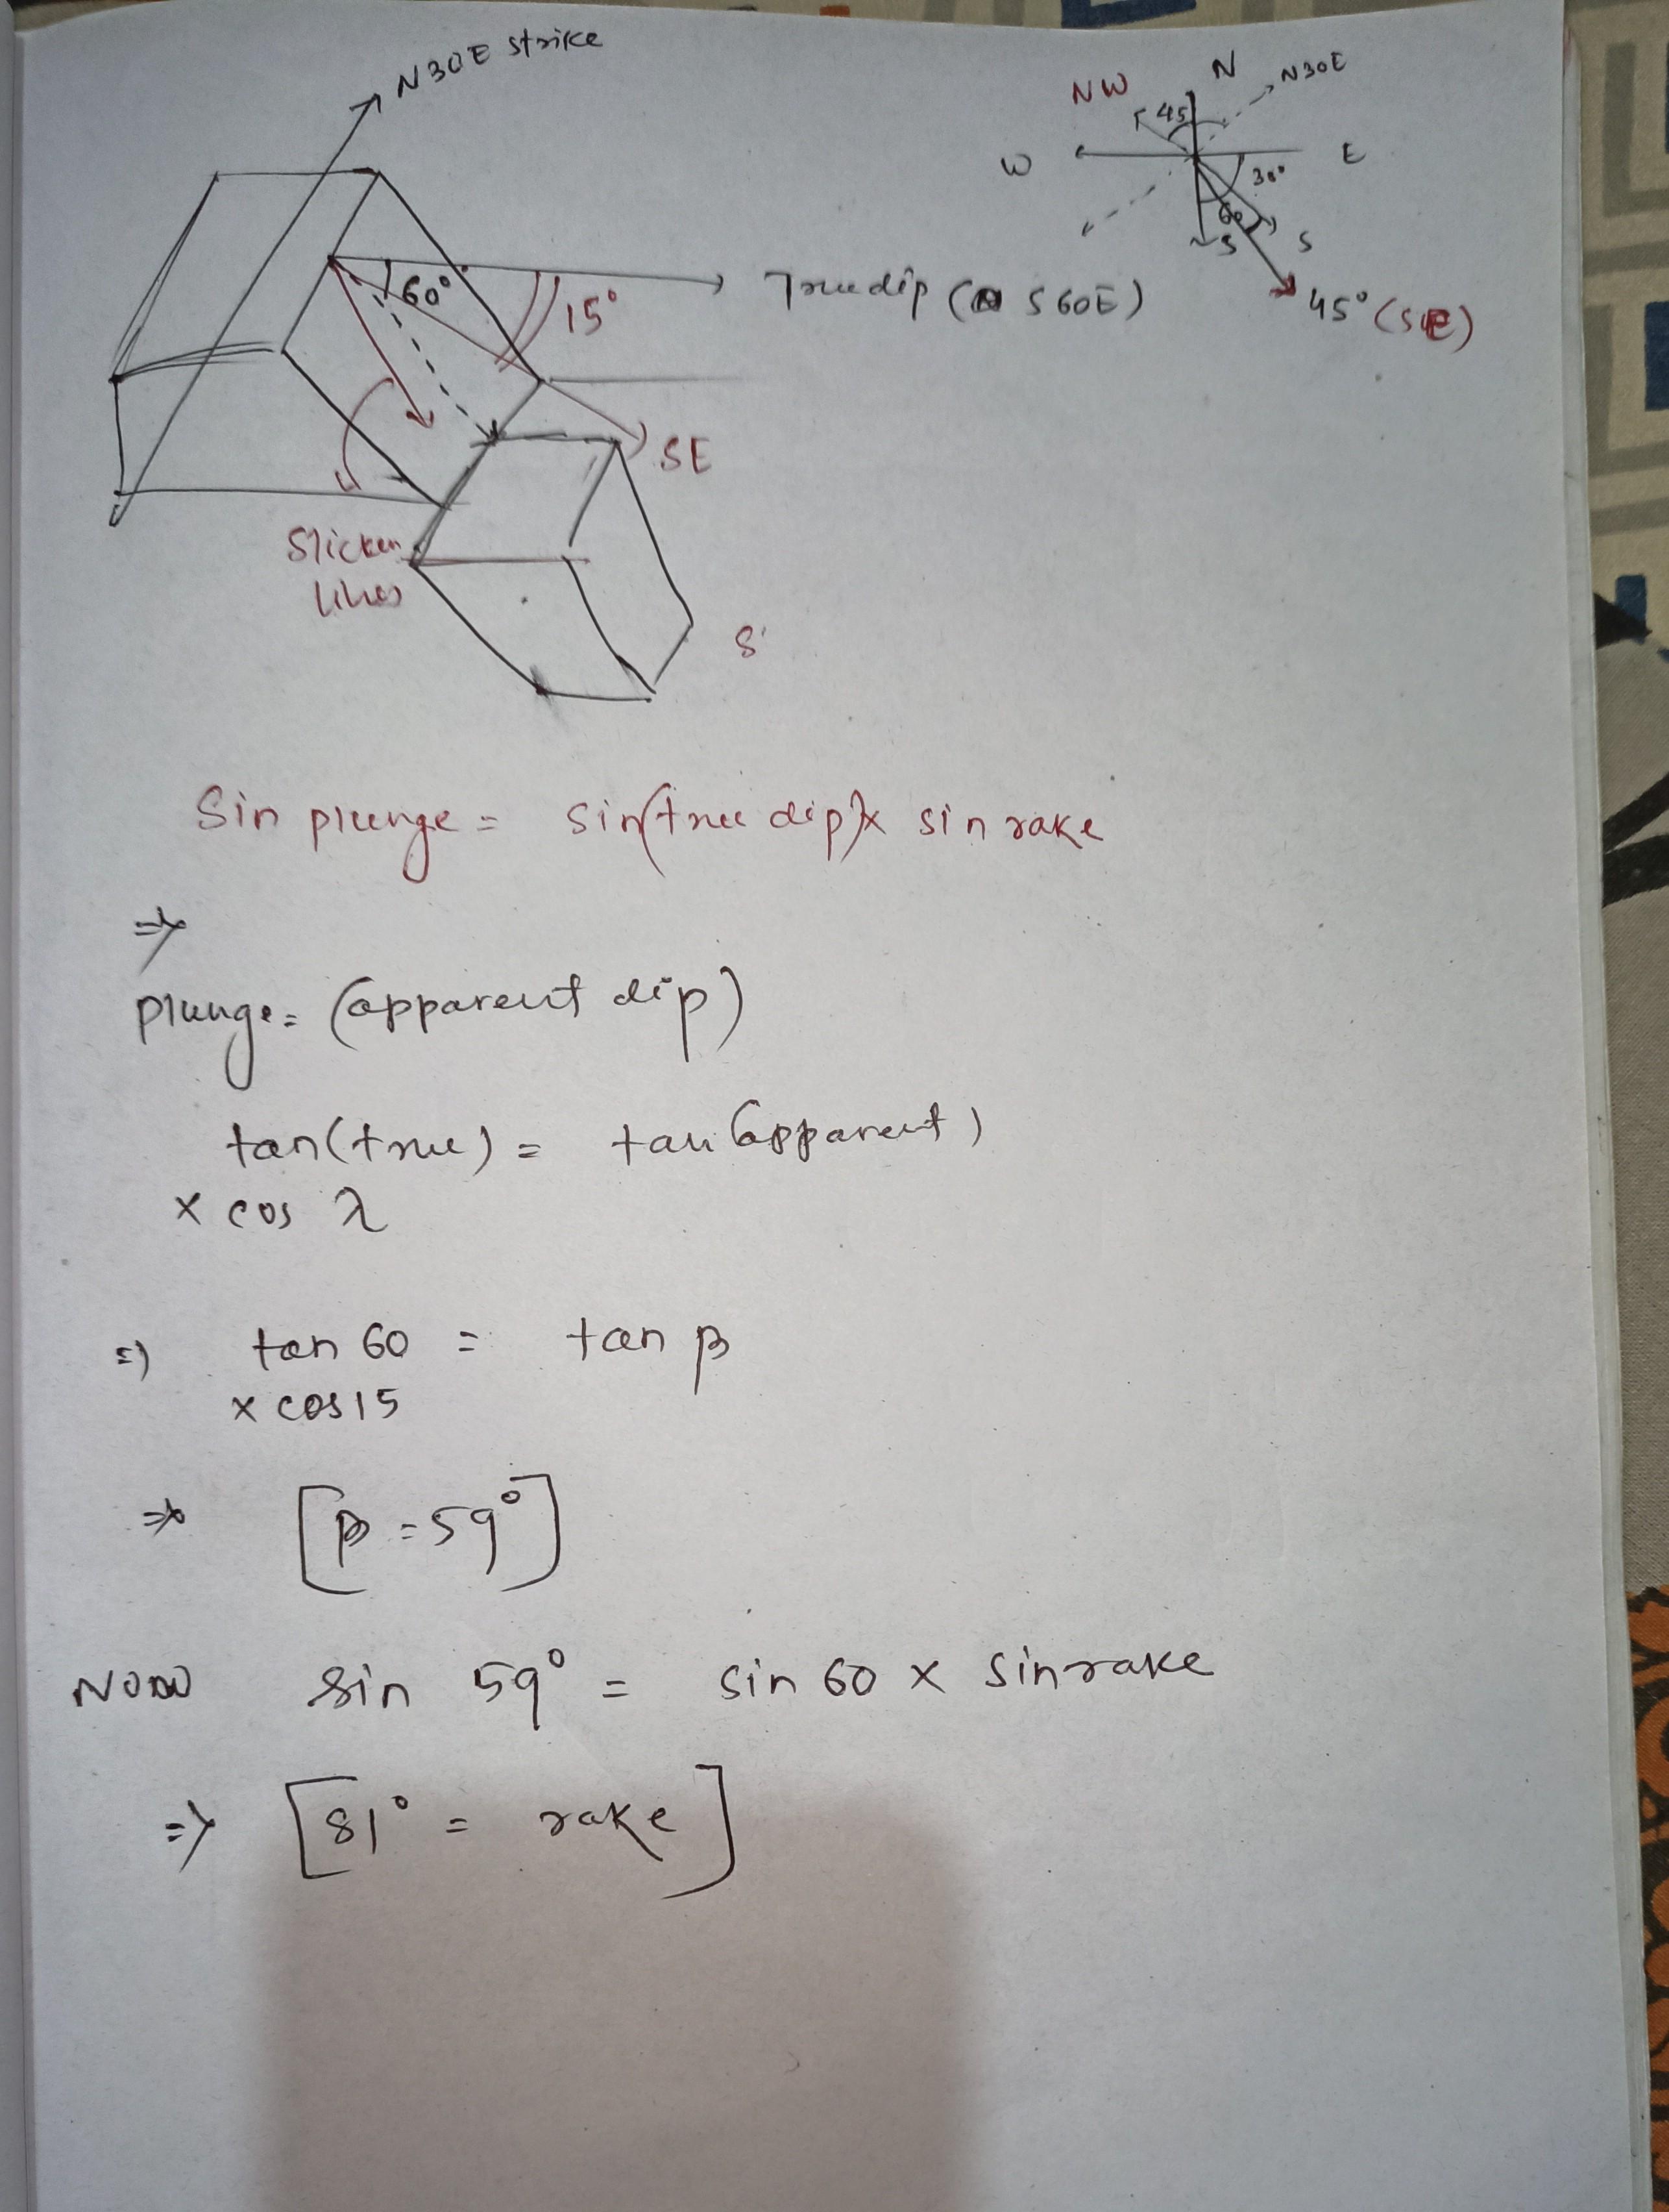 N30E strike
N
N30E
NW
45
W
E
30°
60
S
S
45° (SE)
60°
15°
True dip (S60E)
SE
Slicken
lines
S
Sin plunge = sin(true dip) x sin rake
=>
plunge = (apparent dip)
tan(true) = tan(apparent)
x cos λ
=) tan 60 = tan β
x cos15
=> [β = 59°]
NOW sin 59° = sin 60 x sinrake
=> [81° = rake]